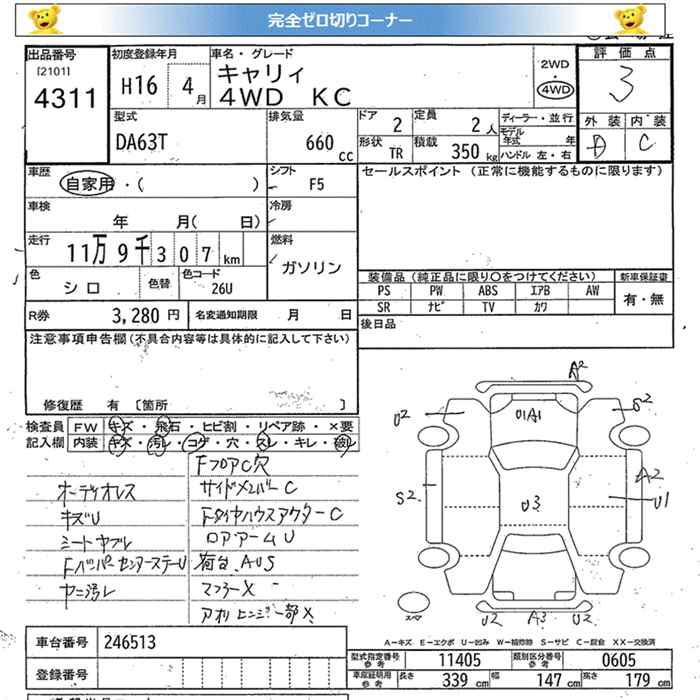 完全ゼロ切りコーナー
出品番号
[2101]
4311
初度登録年月
H16 4月
車名・グレード
キャリィ
4WD KC
2WD
4WD
評価点
3
外装 内装
D C
型式
DA63T
排気量
660 cc
ドア
2
定員
2人
形状
TR
積載
350 kg
ディーラー・並行
モデル年式 年
ハンドル 左・右
車歴
自家用・( )
シフト
F5
セールスポイント (正常に機能するものに限ります)
車検
年 月( 日)
冷房
走行
11万9千307km
燃料
ガソリン
色
シロ
色替
色コード
26U
装備品(純正品に限り〇をつけてください)
新車保証書
PS PW ABS エアB AW
SR ナビ TV カワ
有・無
R券 3,280円
名変通知期限 月 日
後日品
注意事項申告欄(不具合内容等は具体的に記入して下さい)
修復歴 有 [箇所 ]
検査員記入欄
FW キズ・飛石・ヒビ割・リペア跡・×要
内装 キズ・汚レ・コゲ・穴・スレ・キレ・破レ
FフロアC穴
オーディオレス
サイドメンバーC
キズU
FタイヤハウスアウターC
シートヤブレ
ロアアームU
FバンパーセンターステーU
荷台.AUS
ヤニ汚レ
マフラーX
アオリヒンジ一部X
A2
U2
S2
01A1
S2
U3
A2
U1
U2 A3 U2
スペア
A-キズ E-エクボ U-凹み W-補修跡 S-サビ C-腐食 XX-交換済
車台番号 246513
型式指定番号 参考 11405
類別区分番号 参考 0605
登録番号
車庫証明用 参考 長さ 339cm 幅 147cm 高さ 179cm